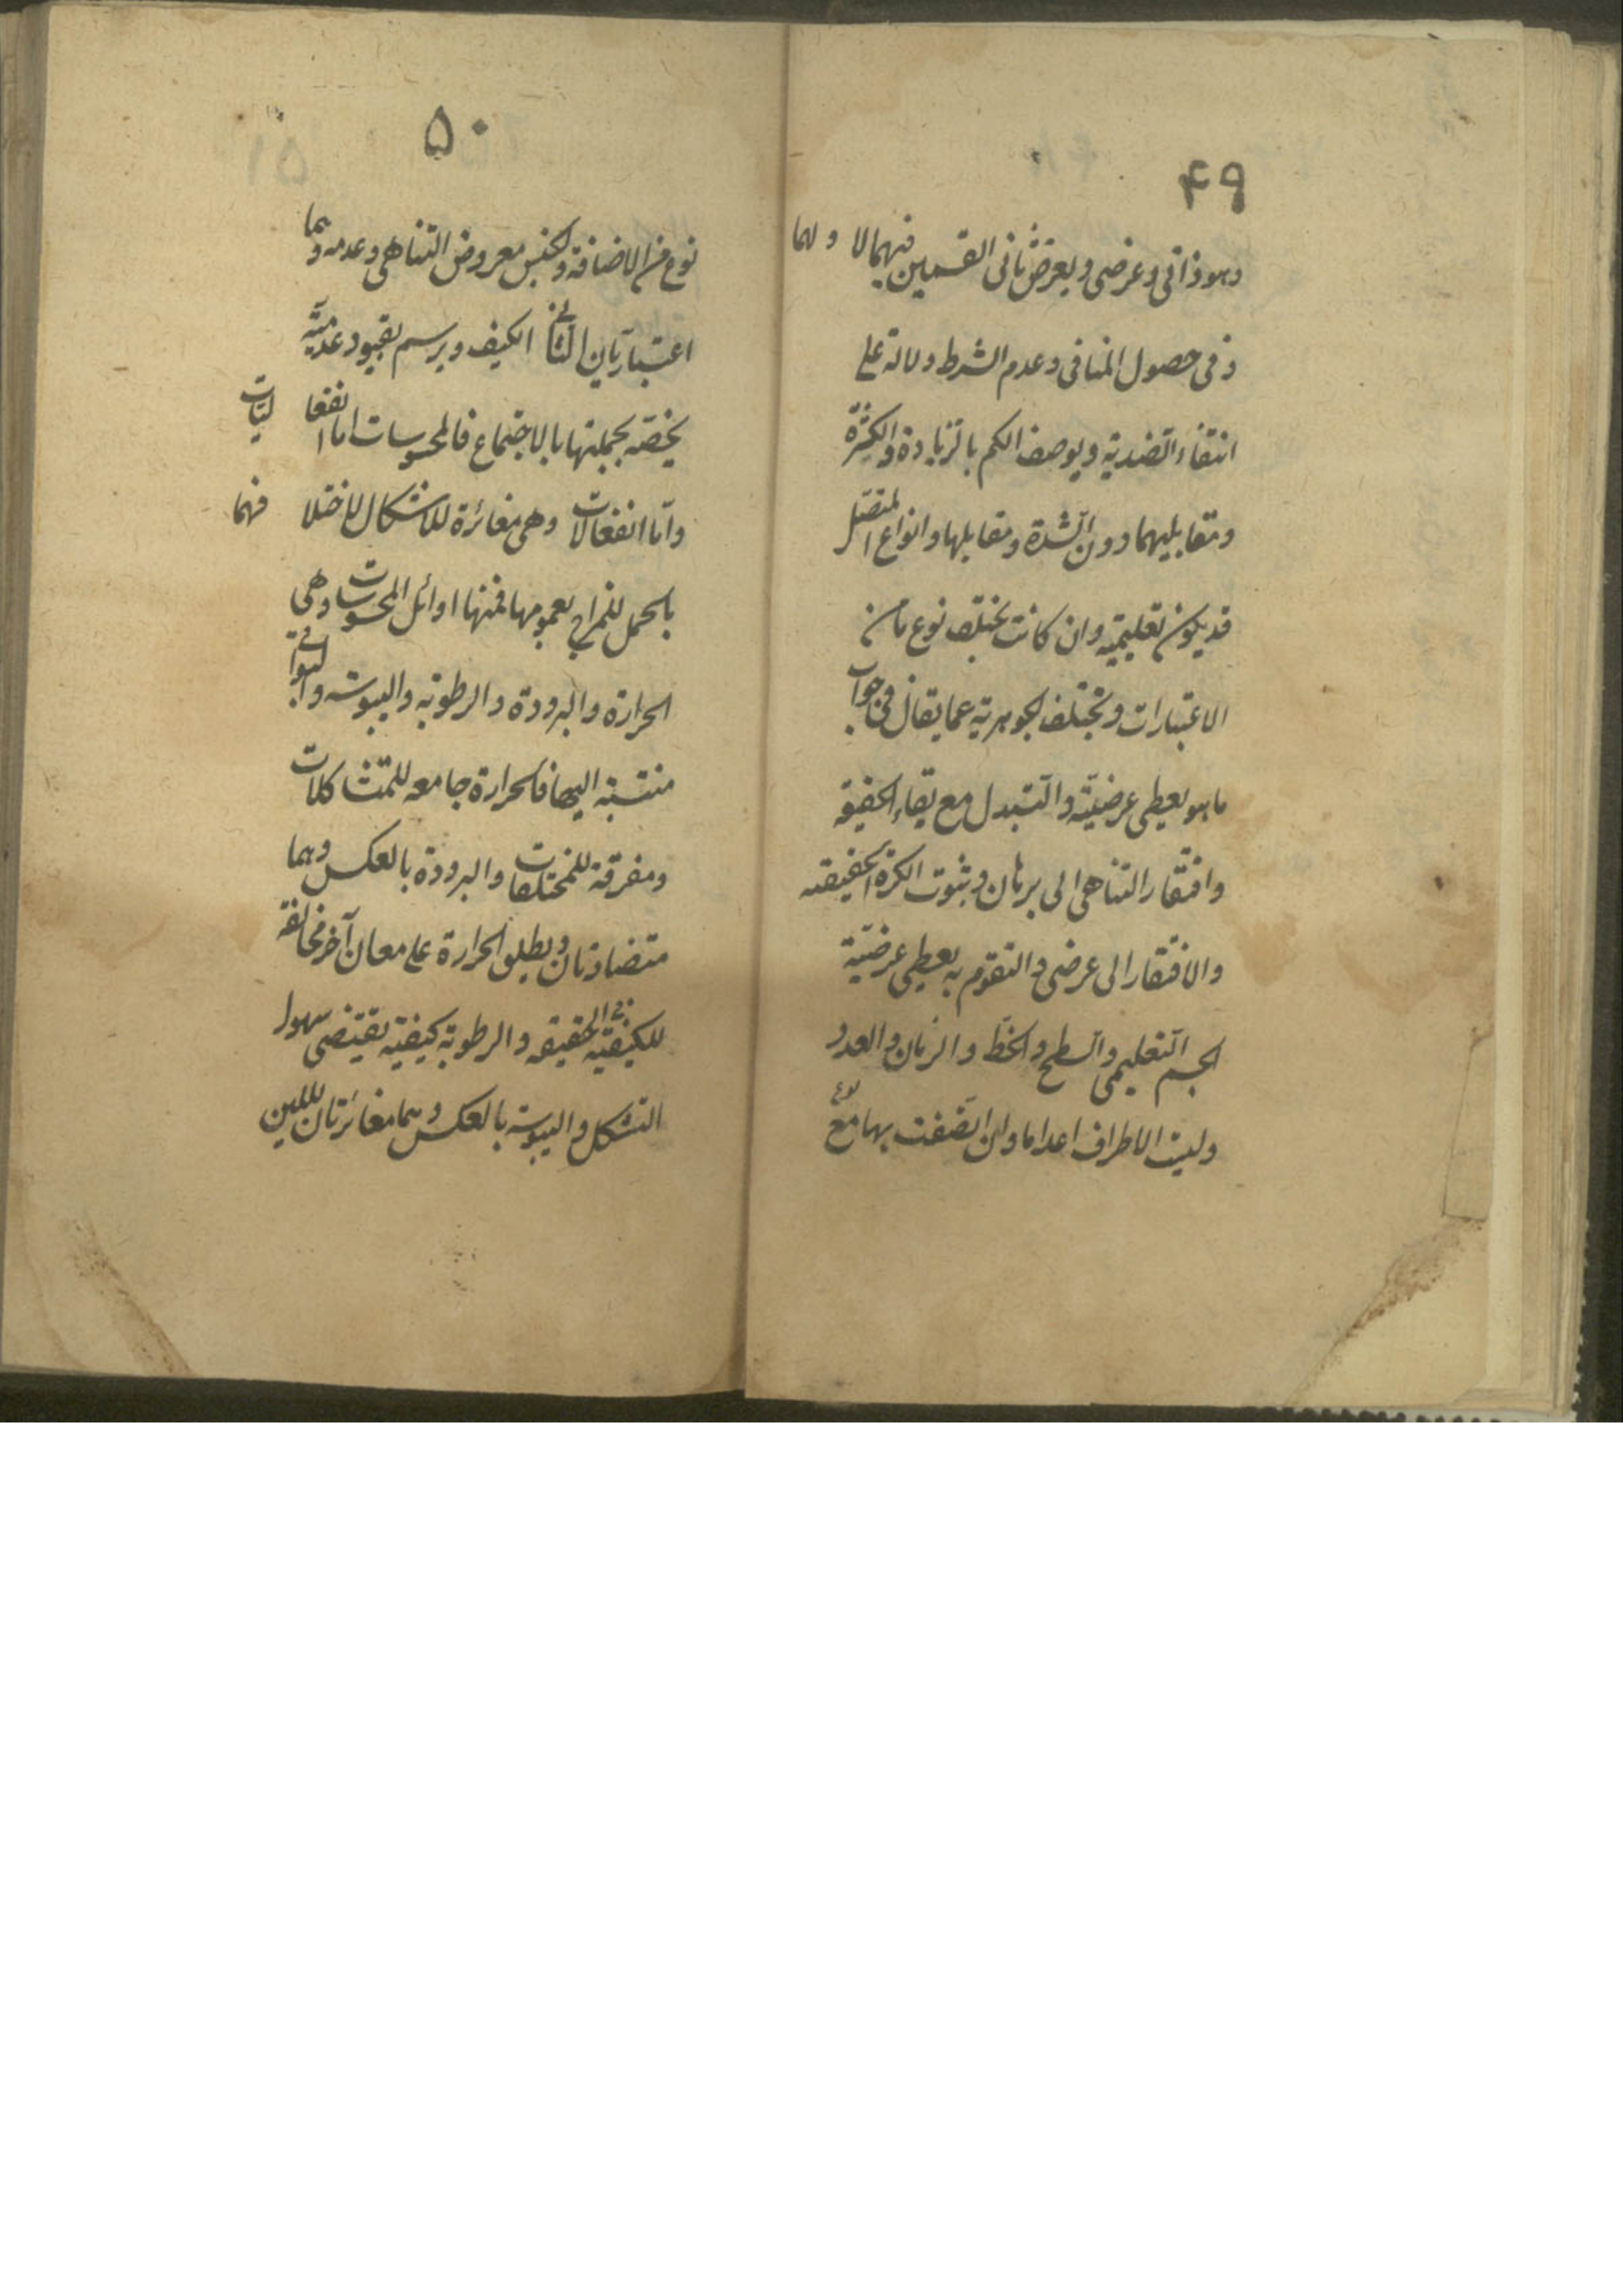 ۴۹
وهو ذاتی وعرضی ویعرض ثانی القسمین فیهما لا ولهما
و فی حصول المنافی وعدم الشرط دلالة علی
انتفاء الضدیة ویوصف الکم بالزیادة والکثرة
ومقابلیهما دون الشدة ومقابلها وانواع المتصل
قد یکون تعلیمیة وان کانت یختلف نوع ما من
الاعتبارات وتختلف الجوهریة عما یقال فی جواب
ما هو یعطی عرضیته والتبدل مع بقاء الحقیقه
وافتقار التناهی الی برهان وثبوت الکرة الحقیقیه
والافتقار الی عرضی والتقوم به یعطی عرضیة
الجسم التعلیمی والسطح والخط والزمان والعدد
ولیست الاطراف اعداما وان اتصفت بها مع
۵۰
نوع من الاضافة والجنس معروض التناهی وعدمه وهما
اعتباریان الثانی الکیف ویرسم بقیود عدمیة
یخصه بجملتها بالاجتماع فالمحسوسات اما انفعالیات
واما انفعالات وهی مغائرة للاشکال لاختلافهما
بالحمل للمزاج بعمومها فمنها اوائل المحسوسات وهی
الحرارة والبرودة والرطوبه والیبوسه والبواقی
منتسبة الیها فالحرارة جامعه للمتشاکلات
ومفرقة للمختلفات والبرودة بالعکس وهما
متضادتان ویطلق الحرارة علی معان آخر مخالفة
للکیفیة فی الحقیقه والرطوبة کیفیة یقتضی سهولة
التشکل والیبوسة بالعکس وهما مغائرتان لللین